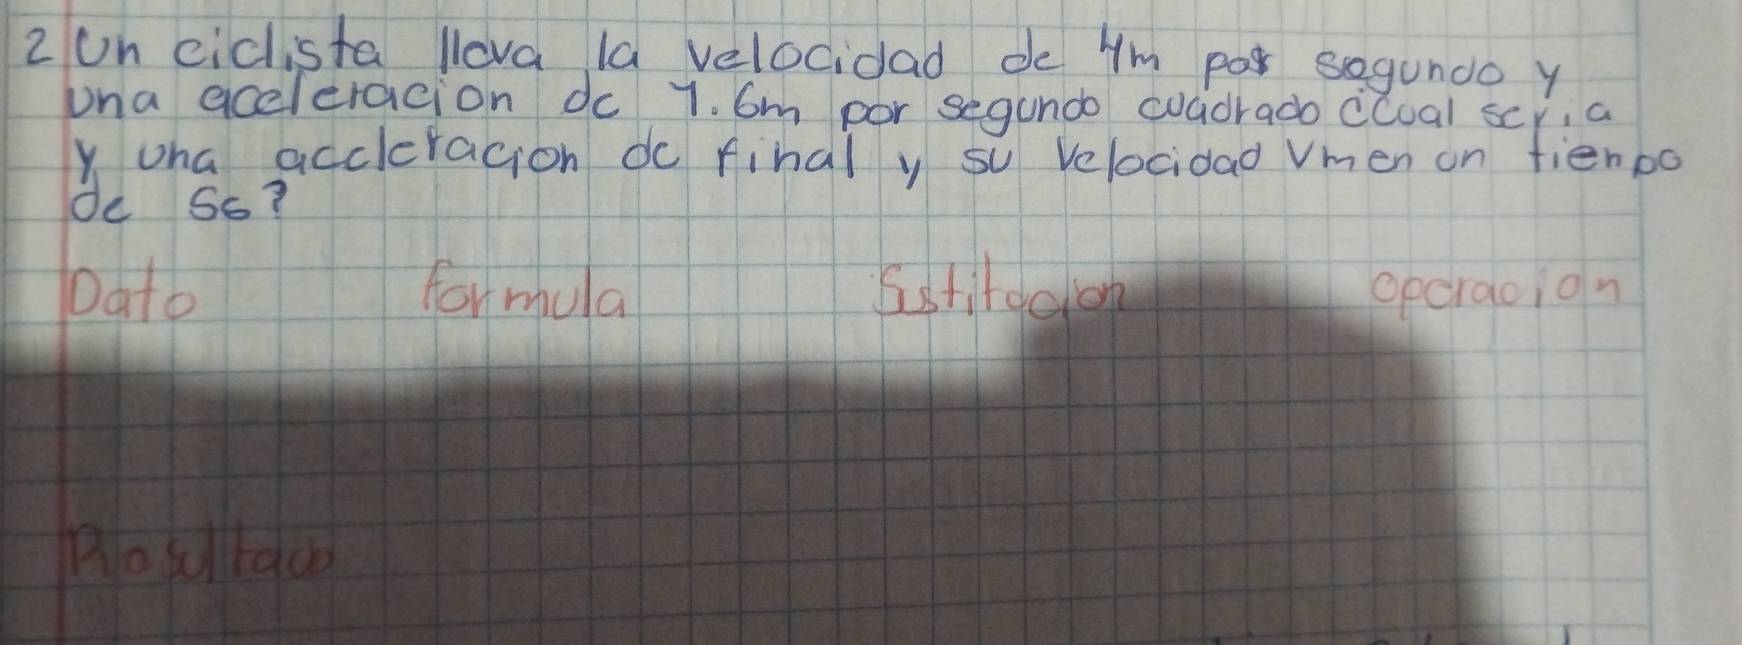 2 Un ciclista lleva la velocidad de 4m por segundo y
una aceleracion de 1.6m por segundo cuadrado ¿Cual seria
y una acceleracion de final y su velocidad Vm en un tienpo
de 5s?
Dato formula Sustitocion operacion
Resultado